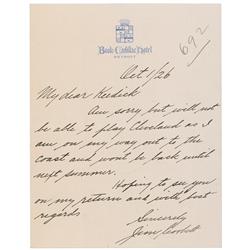 Book-Cadillac Hotel
DETROIT
692
Oct 1/26
My dear Keedick
Am sorry but will not
be able to play Cleveland as I
am on my way out to the
coast and won't be back until
next summer.
Hoping to see you
on my return and with best
regards
Sincerely
Jim Corbett